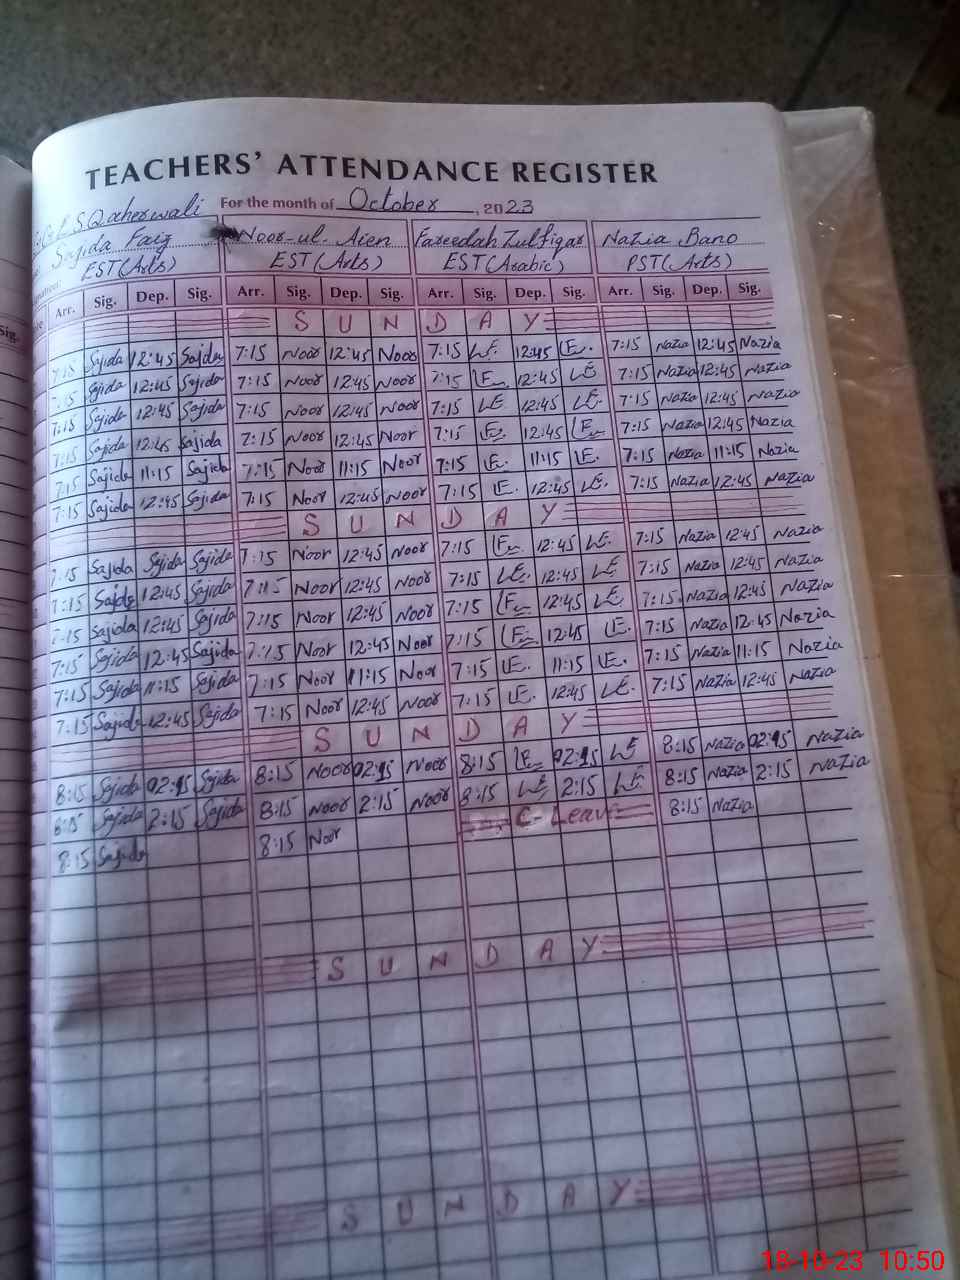 TEACHERS' ATTENDANCE REGISTER
For the month of October, 2023
Sajida Faiz Noor-ul-Aien Fareedah Zulfiqar Nazia Bano
EST(Arts) EST(Arts) EST(Arabic) PST(Arts)
Arr. Sig. Dep. Sig. Arr. Sig. Dep. Sig. Arr. Sig. Dep. Sig. Arr. Sig. Dep. Sig.
SUNDAY
7:15 Sajida 12:45 Sajida 7:15 Noor 12:45 Noor 7:15 12:45 7:15 Nazia 12:45 Nazia
7:15 Sajida 12:45 Sajida 7:15 Noor 12:45 Noor 7:15 12:45 7:15 Nazia 12:45 Nazia
7:15 Sajida 12:45 Sajida 7:15 Noor 12:45 Noor 7:15 12:45 7:15 Nazia 12:45 Nazia
7:15 Sajida 12:45 Sajida 7:15 Noor 12:45 Noor 7:15 12:45 7:15 Nazia 12:45 Nazia
7:15 Sajida 11:15 Sajida 7:15 Noor 11:15 Noor 7:15 11:15 7:15 Nazia 11:15 Nazia
7:15 Sajida 12:45 Sajida 7:15 Noor 12:45 Noor 7:15 12:45 7:15 Nazia 12:45 Nazia
SUNDAY
7:15 Sajida Sajida Sajida 7:15 Noor 12:45 Noor 7:15 12:45 7:15 Nazia 12:45 Nazia
7:15 Sajida 12:45 Sajida 7:15 Noor 12:45 Noor 7:15 12:45 7:15 Nazia 12:45 Nazia
7:15 Sajida 12:45 Sajida 7:15 Noor 12:45 Noor 7:15 12:45 7:15 Nazia 12:45 Nazia
7:15 Sajida 12:45 Sajida 7:15 Noor 12:45 Noor 7:15 12:45 7:15 Nazia 12:45 Nazia
7:15 Sajida 11:15 Sajida 7:15 Noor 11:15 Noor 7:15 11:15 7:15 Nazia 11:15 Nazia
7:15 Sajida 12:45 Sajida 7:15 Noor 12:45 Noor 7:15 12:45 7:15 Nazia 12:45 Nazia
SUNDAY
8:15 Sajida 02:15 Sajida 8:15 Noor 02:15 Noor 8:15 02:15 8:15 Nazia 02:15 Nazia
8:15 Sajida 2:15 Sajida 8:15 Noor 2:15 Noor 8:15 2:15 8:15 Nazia 2:15 Nazia
8:15 Sajida 8:15 Noor C-Leave 8:15 Nazia
SUNDAY
SUNDAY
18-10-23 10:50